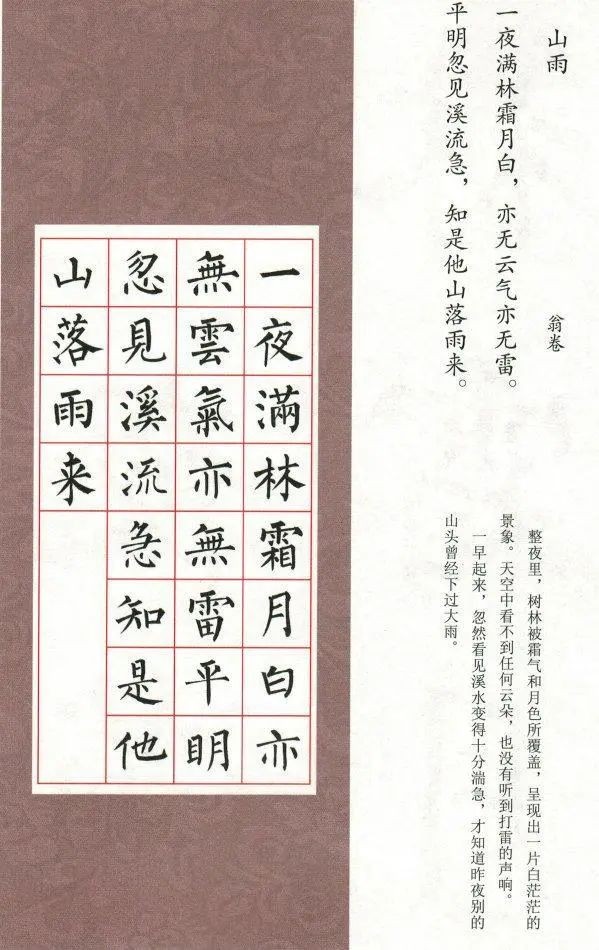 山雨
翁卷
一夜满林霜月白，亦无云气亦无雷。
平明忽见溪流急，知是他山落雨来。
整夜里，树林被霜气和月色所覆盖，呈现出一片白茫茫的
景象。天空中看不到任何云朵，也没有听到打雷的声响。
一早起来，忽然看见溪水变得十分湍急，才知道昨夜别的
山头曾经下过大雨。
一夜滿林霜月白亦
無雲氣亦無雷平明
忽見溪流急知是他
山落雨来